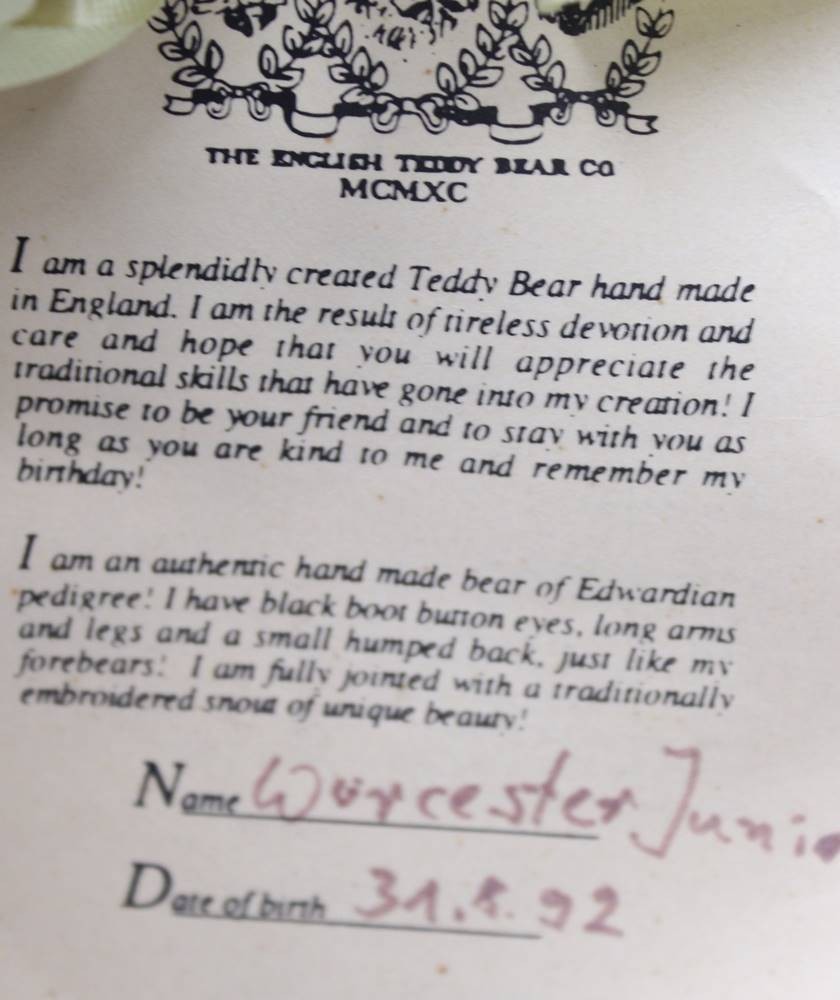 THE ENGLISH TEDDY BEAR CO
MCMXC
I am a splendidly created Teddy Bear hand made
in England. I am the result of tireless devotion and
care and hope that you will appreciate the
traditional skills that have gone into my creation! I
promise to be your friend and to stay with you as
long as you are kind to me and remember my
birthday!
I am an authentic hand made bear of Edwardian
pedigree! I have black boot button eyes, long arms
and legs and a small humped back, just like my
forebears! I am fully jointed with a traditionally
embroidered snout of unique beauty!
Name Worcester Junio
Date of birth 31.8.92